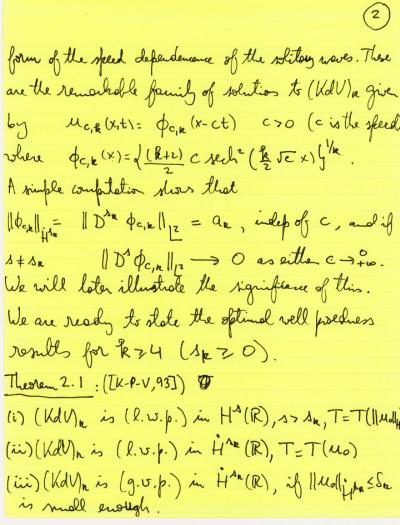 2
form of the speed dependence of the solitary waves. These
are the remarkable family of solutions to (KdV)_k given
by u_{c,k}(x,t) = φ_{c,k}(x-ct) c>0 (c is the speed
where φ_{c,k}(x) = {(k+2)/2 c sech²(k/2 √c x)}^{1/k}.
A simple computation shows that
‖φ_{c,k}‖_{Ḣ^{s_k}} = ‖D^{s_k} φ_{c,k}‖_{L²} = a_k, indep of c, and if
s≠s_k ‖D^s φ_{c,k}‖_{L²} → 0 as either c → 0 +∞.
We will later illustrate the significance of this.
We are ready to state the optimal well posedness
results for k≥4 (s_k ≥ 0).
Theorem 2.1: ([K-P-V,93])
(i) (KdV)_k is (l.w.p.) in H^s(ℝ), s>s_k, T=T(‖u_0‖_H
(ii) (KdV)_k is (l.w.p.) in Ḣ^{s_k}(ℝ), T=T(u_0)
(iii) (KdV)_k is (g.w.p.) in Ḣ^{s_k}(ℝ), if ‖u_0‖_{Ḣ^{s_k}} ≤ δ_k
is small enough.